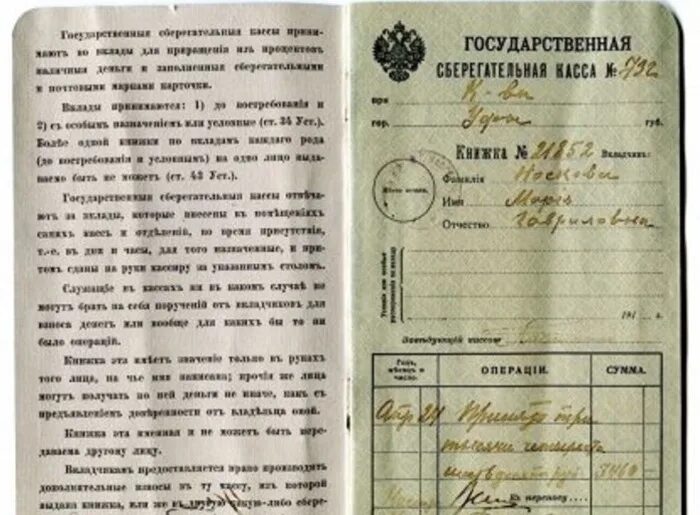 Государственныя сберегательныя кассы прини-
маютъ во вклады для приращенія изъ процентовъ
наличныя деньги и заполненныя сберегательными
и почтовыми марками карточки.
Вклады принимаются: 1) до востребованія и
2) съ особымъ назначеніемъ или условные (ст. 34 Уст.).
Болѣе одной книжки по вкладамъ каждаго рода
(до востребованія и условнымъ) на одно лицо выда-
ваемо быть не можетъ (ст. 43 Уст.).
Государственныя сберегательныя кассы отвѣча-
ютъ за вклады, которые внесены въ помѣщеніяхъ
самихъ кассъ и отдѣленій, во время присутствія,
т.-е. въ дни и часы, для того назначенные, и при-
томъ сданы на руки кассиру за указаннымъ столомъ.
Служащіе въ кассахъ ни въ какомъ случаѣ не
могутъ брать на себя порученій отъ вкладчиковъ для
взноса денегъ или вообще для какихъ бы то ни
было операцій.
Книжка эта имѣетъ значеніе только въ рукахъ
того лица, на чье имя написана; прочія же лица
могутъ получать по ней деньги не иначе, какъ съ
предъявленіемъ довѣренности отъ владѣльца оной.
Книжка эта именная и не можетъ быть пере-
даваема другому лицу.
Вкладчикамъ предоставляется право производить
дополнительные взносы въ ту кассу, изъ которой
выдана книжка, или же въ другую какую-либо сбере-
ГОСУДАРСТВЕННАЯ
СБЕРЕГАТЕЛЬНАЯ КАССА № 732
при К-ве
гор. Уфа губ.
Книжка № 21852 Вкладчикъ:
Фамилія Носкова
Имя Марія
Отчество Гавриловна
191 г.
Завѣдующій кассою
Годъ, мѣсяцъ и число. ОПЕРАЦІИ. СУММА.
Апр 24 Принято три
тысячи четыреста
шестьдесятъ руб 3460-
Къ переносу